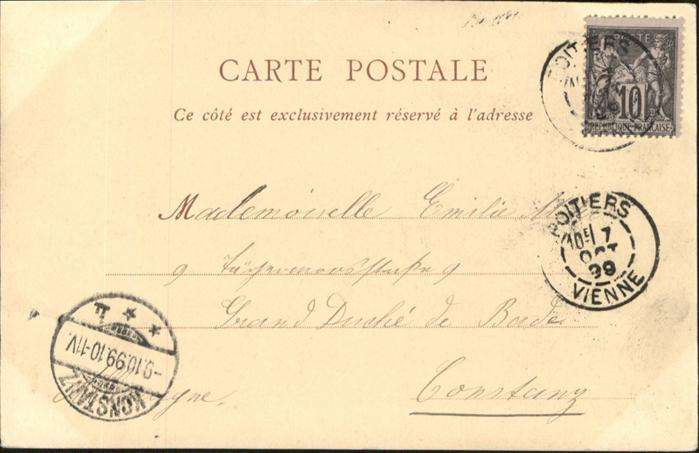 CARTE POSTALE
Ce côté est exclusivement réservé à l'adresse
POITIERS
POSTE
10
REPUBLIQUE FRANÇAISE
Mademoiselle Emilie
POITIERS
10E 7
OCT
99
VIENNE
9 9
Grand Duché de Bade
Constanz
KONSTANZ
-9.10.99.10-11V.